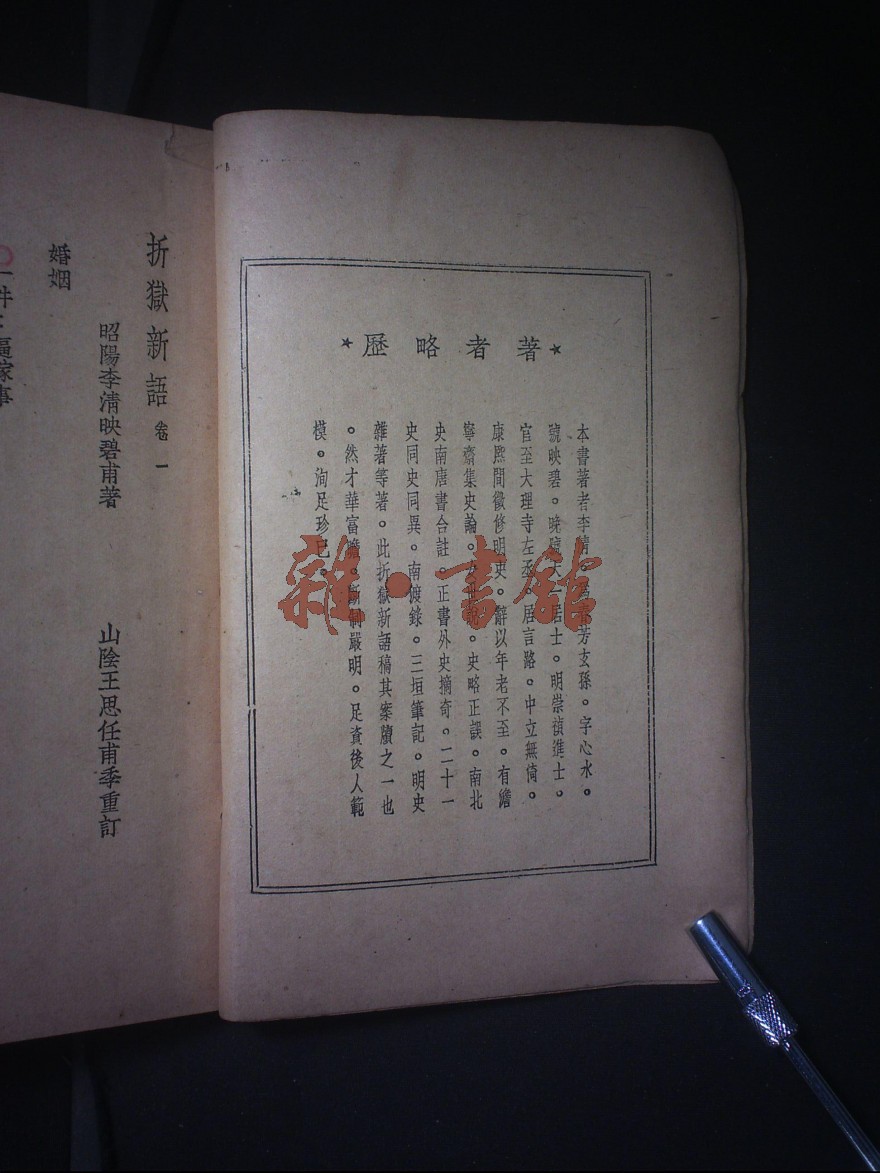 ★著者略歷★
本書著者李清。為春芳玄孫。字心水。
號映碧。晚號天一居士。明崇禎進士。
官至大理寺左丞。居言路。中立無倚。
康熙間徵修明史。辭以年老不至。有澹
寧齋集史論。史略正誤。南北
史南唐書合註。正書外史摘奇。二十一
史同史同異。南渡錄。三垣筆記。明史
雜著等著。此折獄新語稿其案牘之一也
。然才華富贍。斷制嚴明。足資後人範
模。洵足珍已。
折獄新語 卷一
昭陽李清映碧甫著 山陰王思任甫季重訂
婚姻
一件：逼嫁事
雜·書館